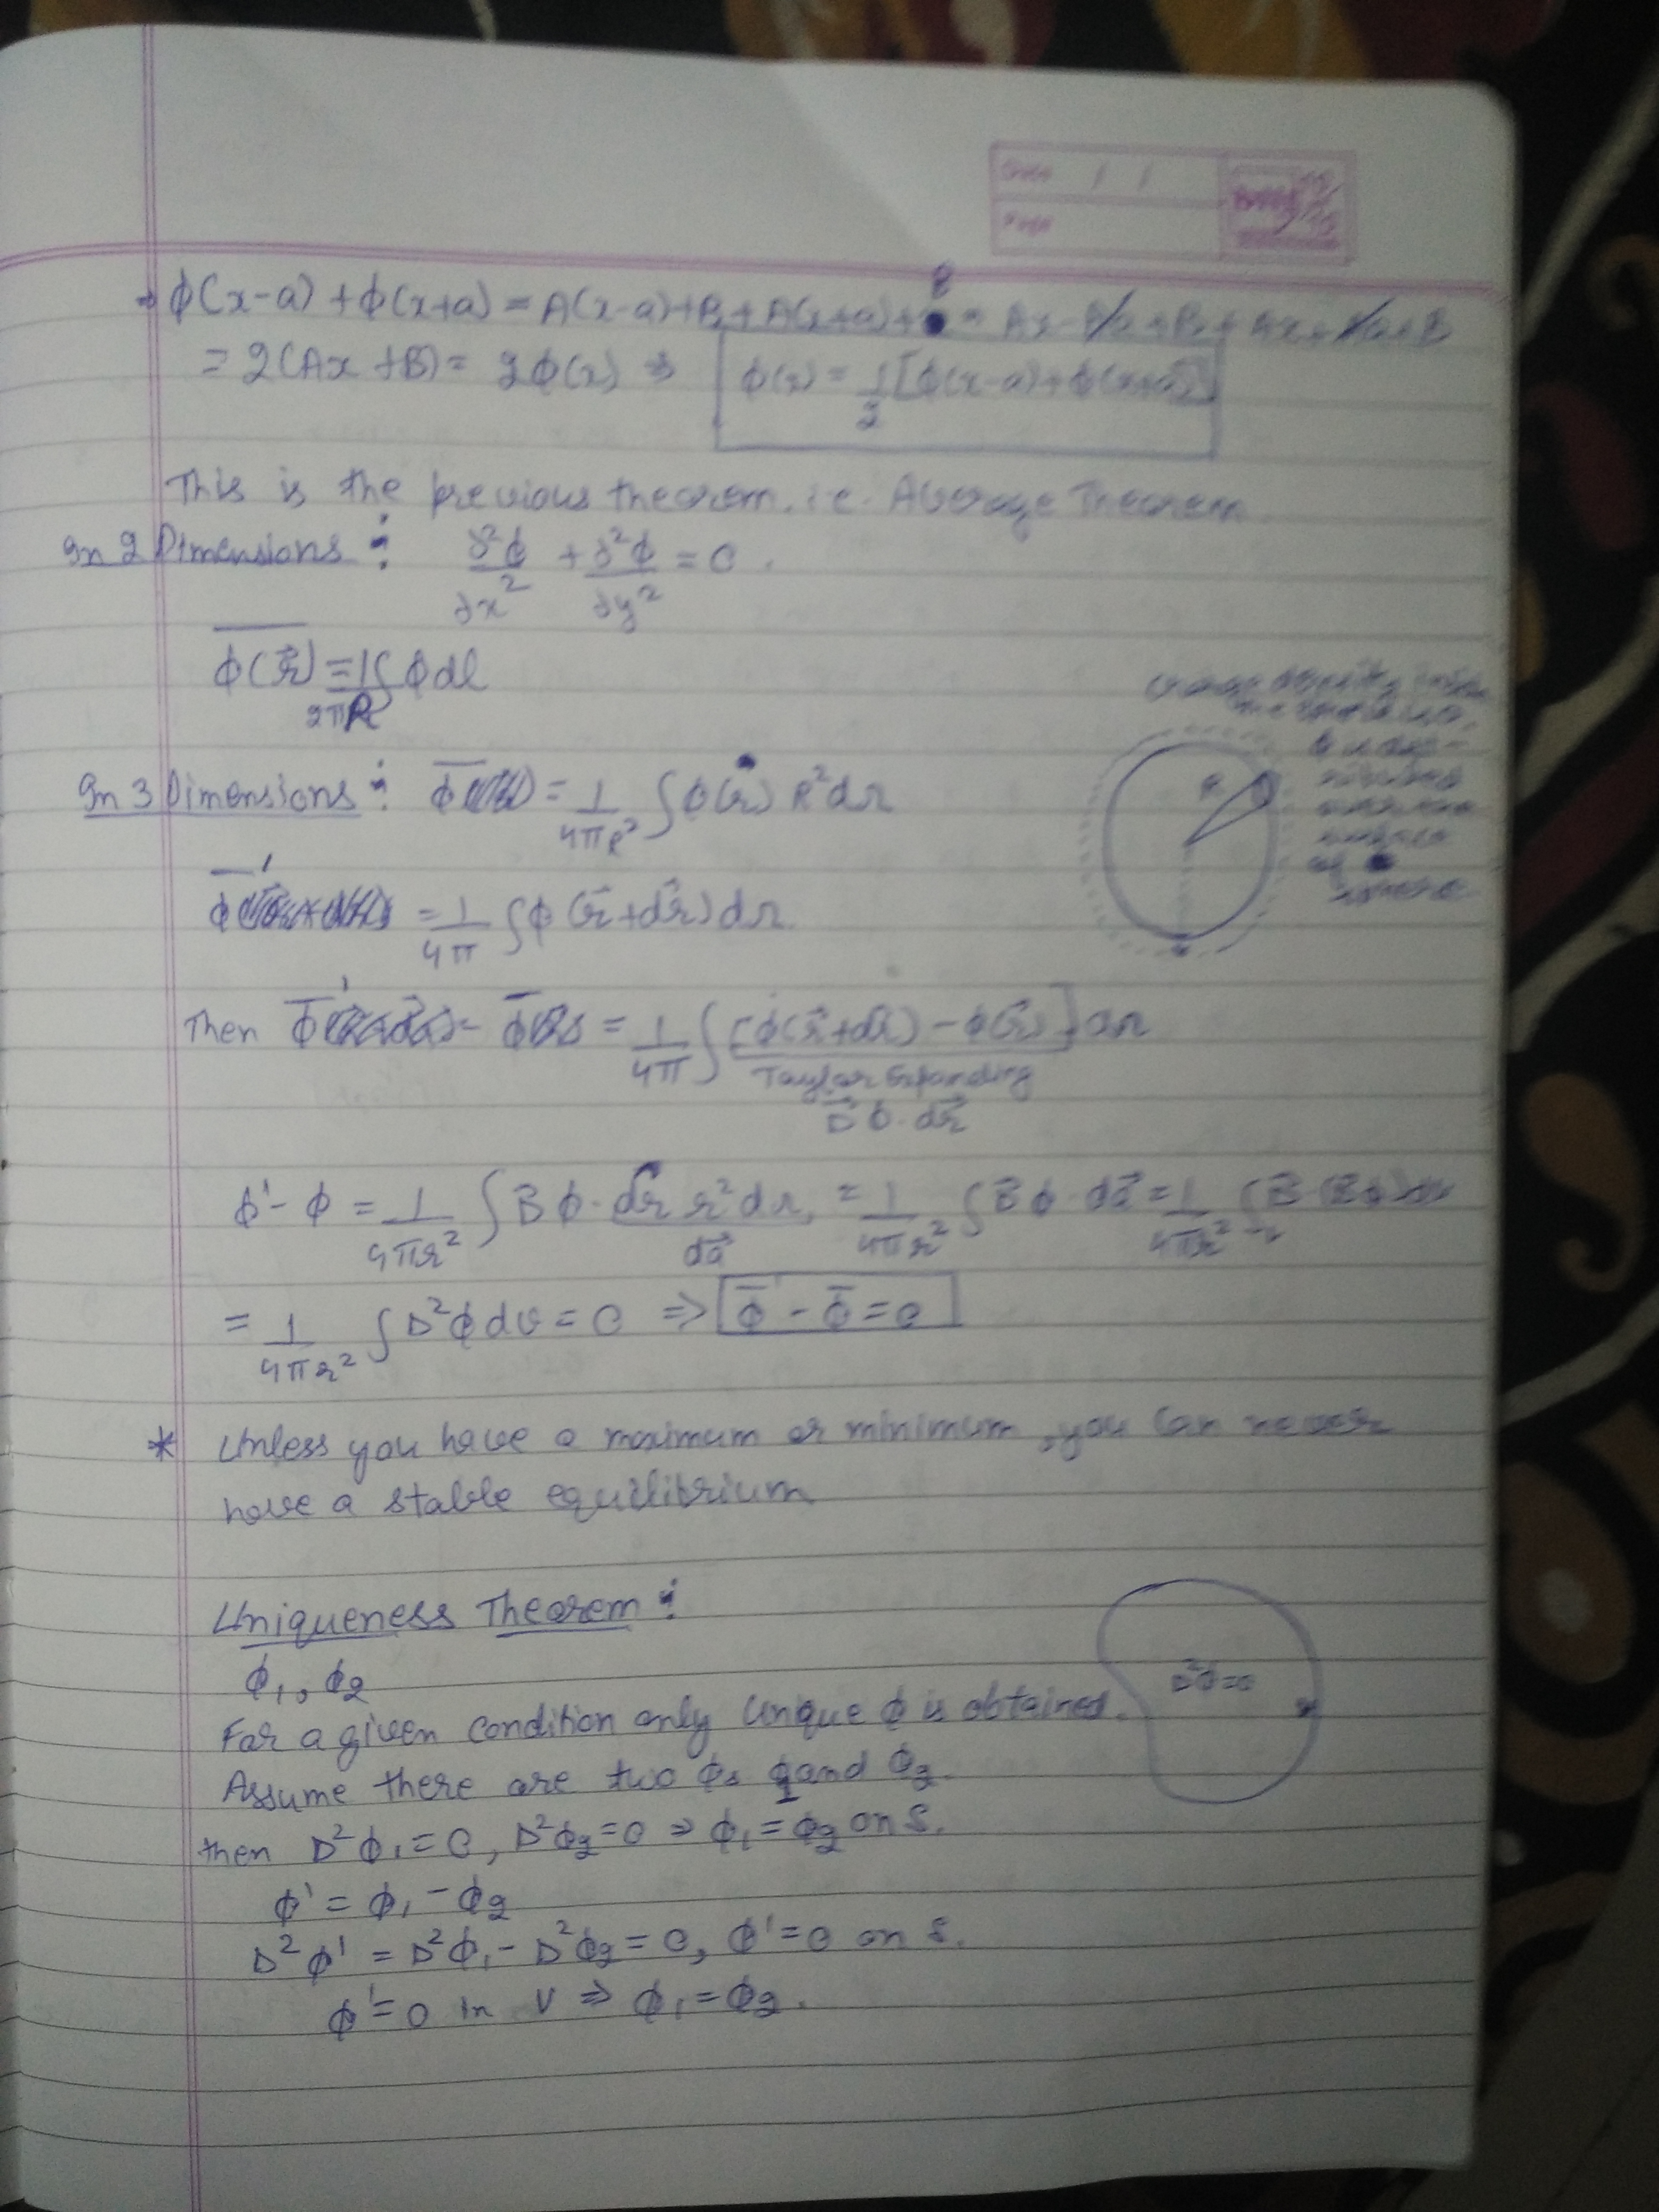 Date / /
Page
→ ϕ(x-a) + ϕ(x+a) = A(x-a)+B + A(x+a)+B = Ax - Aa + B + Ax + Aa + B
= 2(Ax + B) = 2ϕ(x) ⇒ ϕ(x) = 1/2 [ϕ(x-a) + ϕ(x+a)]
This is the previous theorem. i.e. Average Theorem
In 2 Dimensions : ∂²ϕ/∂x² + ∂²ϕ/∂y² = 0.
ϕ(r⃗) = 1/2πR ∫ ϕ dl
Charge density inside
the sphere is 0.
ϕ is dist-
ributed
over the
surface
of
sphere
R
In 3 Dimensions : ϕ̄ = 1/4πR² ∫ ϕ(r⃗) R² dΩ
ϕ̄' = 1/4π ∫ ϕ(r⃗+dr⃗) dΩ.
Then ϕ̄' - ϕ̄ = 1/4π ∫ [ϕ(r⃗+dr⃗) - ϕ(r⃗)] dΩ
Taylor Expanding
∇⃗ϕ. dr⃗
ϕ' - ϕ = 1/4πr² ∫ ∇⃗ϕ · dr⃗ r² dΩ = 1/4πr² ∫ ∇⃗ϕ · da⃗ = 1/4πr² ∫ ∇⃗·(∇⃗ϕ) dv
da⃗
= 1/4πr² ∫ ∇²ϕ dv = 0 ⇒ ϕ̄' - ϕ̄ = 0
* Unless you have a maximum or minimum, you can never
have a stable equilibrium
Uniqueness Theorem :
ϕ₁, ϕ₂
∇²ϕ=0
For a given condition only Unique ϕ is obtained.
Assume there are two ϕs ϕ₁ and ϕ₂.
then ∇²ϕ₁ = 0, ∇²ϕ₂ = 0 ⇒ ϕ₁ = ϕ₂ on S.
ϕ' = ϕ₁ - ϕ₂
∇²ϕ' = ∇²ϕ₁ - ∇²ϕ₂ = 0, ϕ' = 0 on S.
ϕ' = 0 in V ⇒ ϕ₁ = ϕ₂.